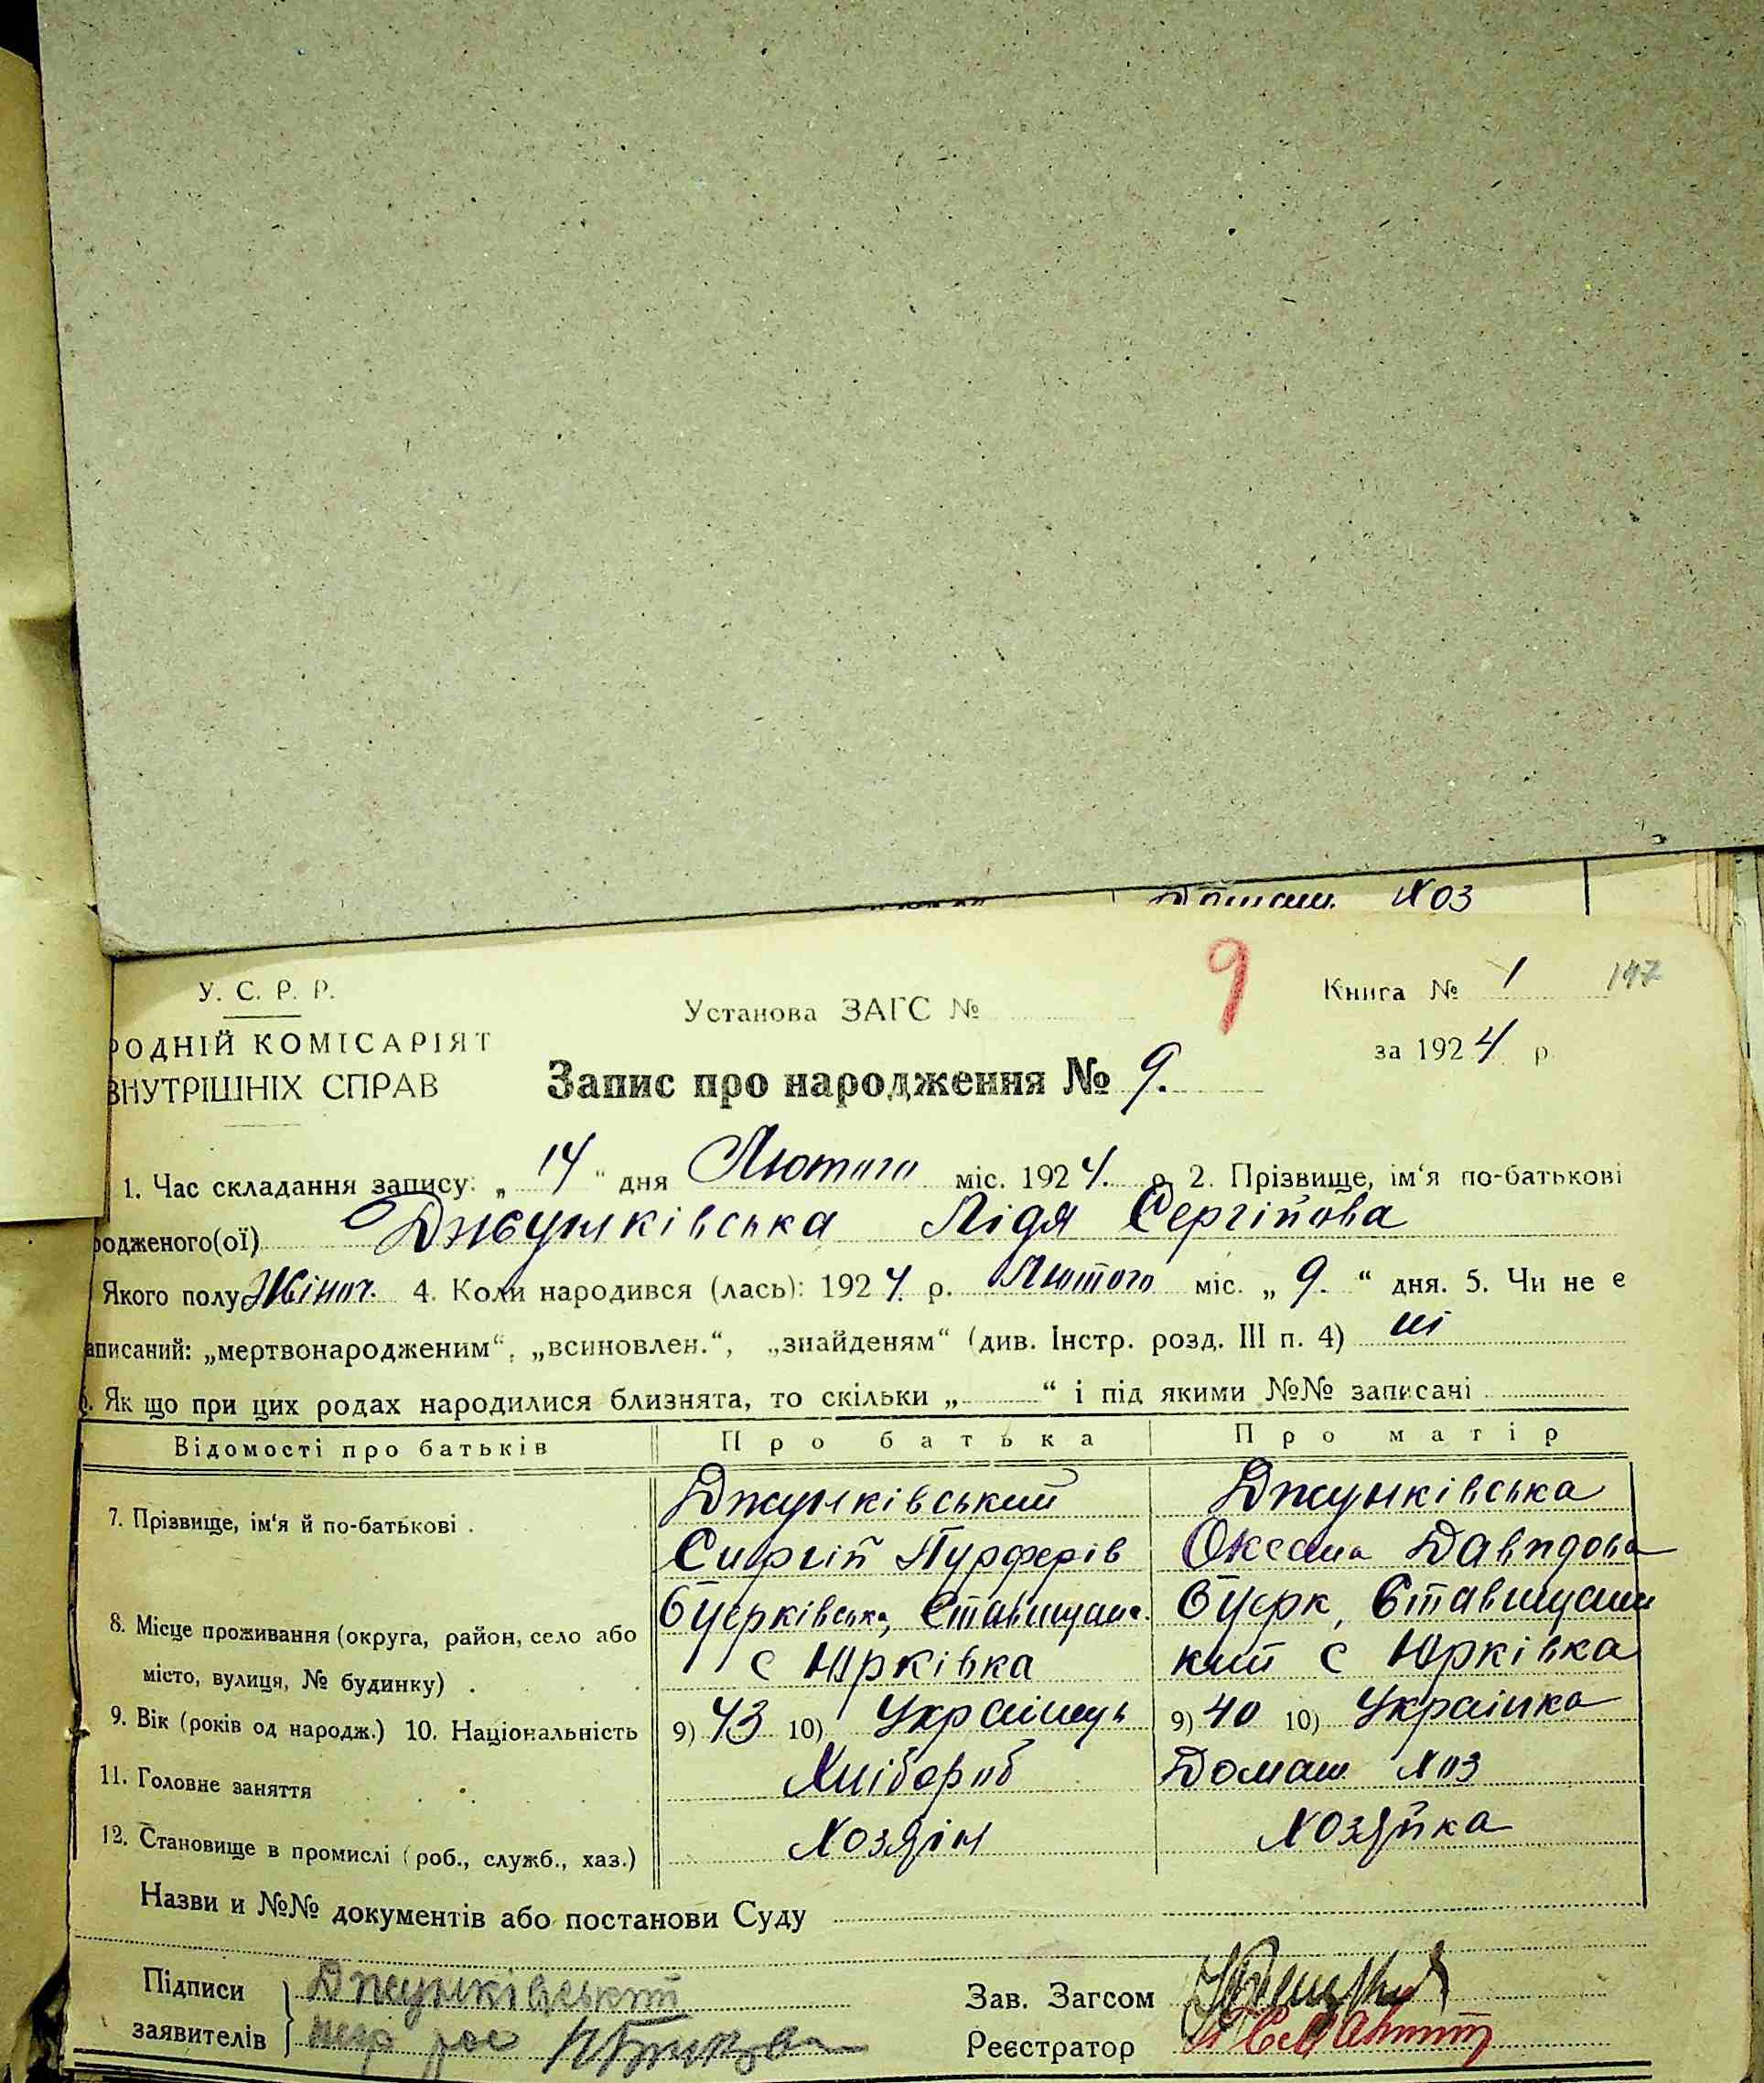 Домаш. Хоз
У. С. Р. Р.
РОДНІЙ КОМІСАРІЯТ
ВНУТРІШНІХ СПРАВ
Установа ЗАГС №
9
Книга № 1
147
за 1924 р.
Запис про народження № 9.
1. Час складання запису: „ 14 “ дня Лютого міс. 1924. р. 2. Прізвище, ім‘я по-батькові
родженого(ої) Джунківська Лідя Сергійова
Якого полу Жіноч. 4. Коли народився (лась): 1924 р. Лютого міс. „ 9. “ дня. 5. Чи не є
аписаний: „мертвонародженим“, „всиновлен.“, „знайденям“ (див. Інстр. розд. III п. 4) ні
. Як що при цих родах народилися близнята, то скільки „ “ і під якими №№ записані
Відомості про батьків Про батька Про матір
7. Прізвище, ім‘я й по-батькові . Джунківський Джунківська
Сиргій Пурферів Оксана Давидова
8. Місце проживання (округа, район, село або Бцерківська, Ставищанс. Бцерк, Ставищан
місто, вулиця, № будинку) . с Юрківка кий с Юрківка
9. Вік (років од народж.) 10. Національність 9) 43 10) Українець 9) 40 10) Українка
11. Головне заняття Хлібороб Домаш Хоз
12. Становище в промислі (роб., служб., хаз.) Хозяін Хозяйка
Назви и №№ документів або постанови Суду
Підписи Джунківський Зав. Загсом
заявителів Реєстратор